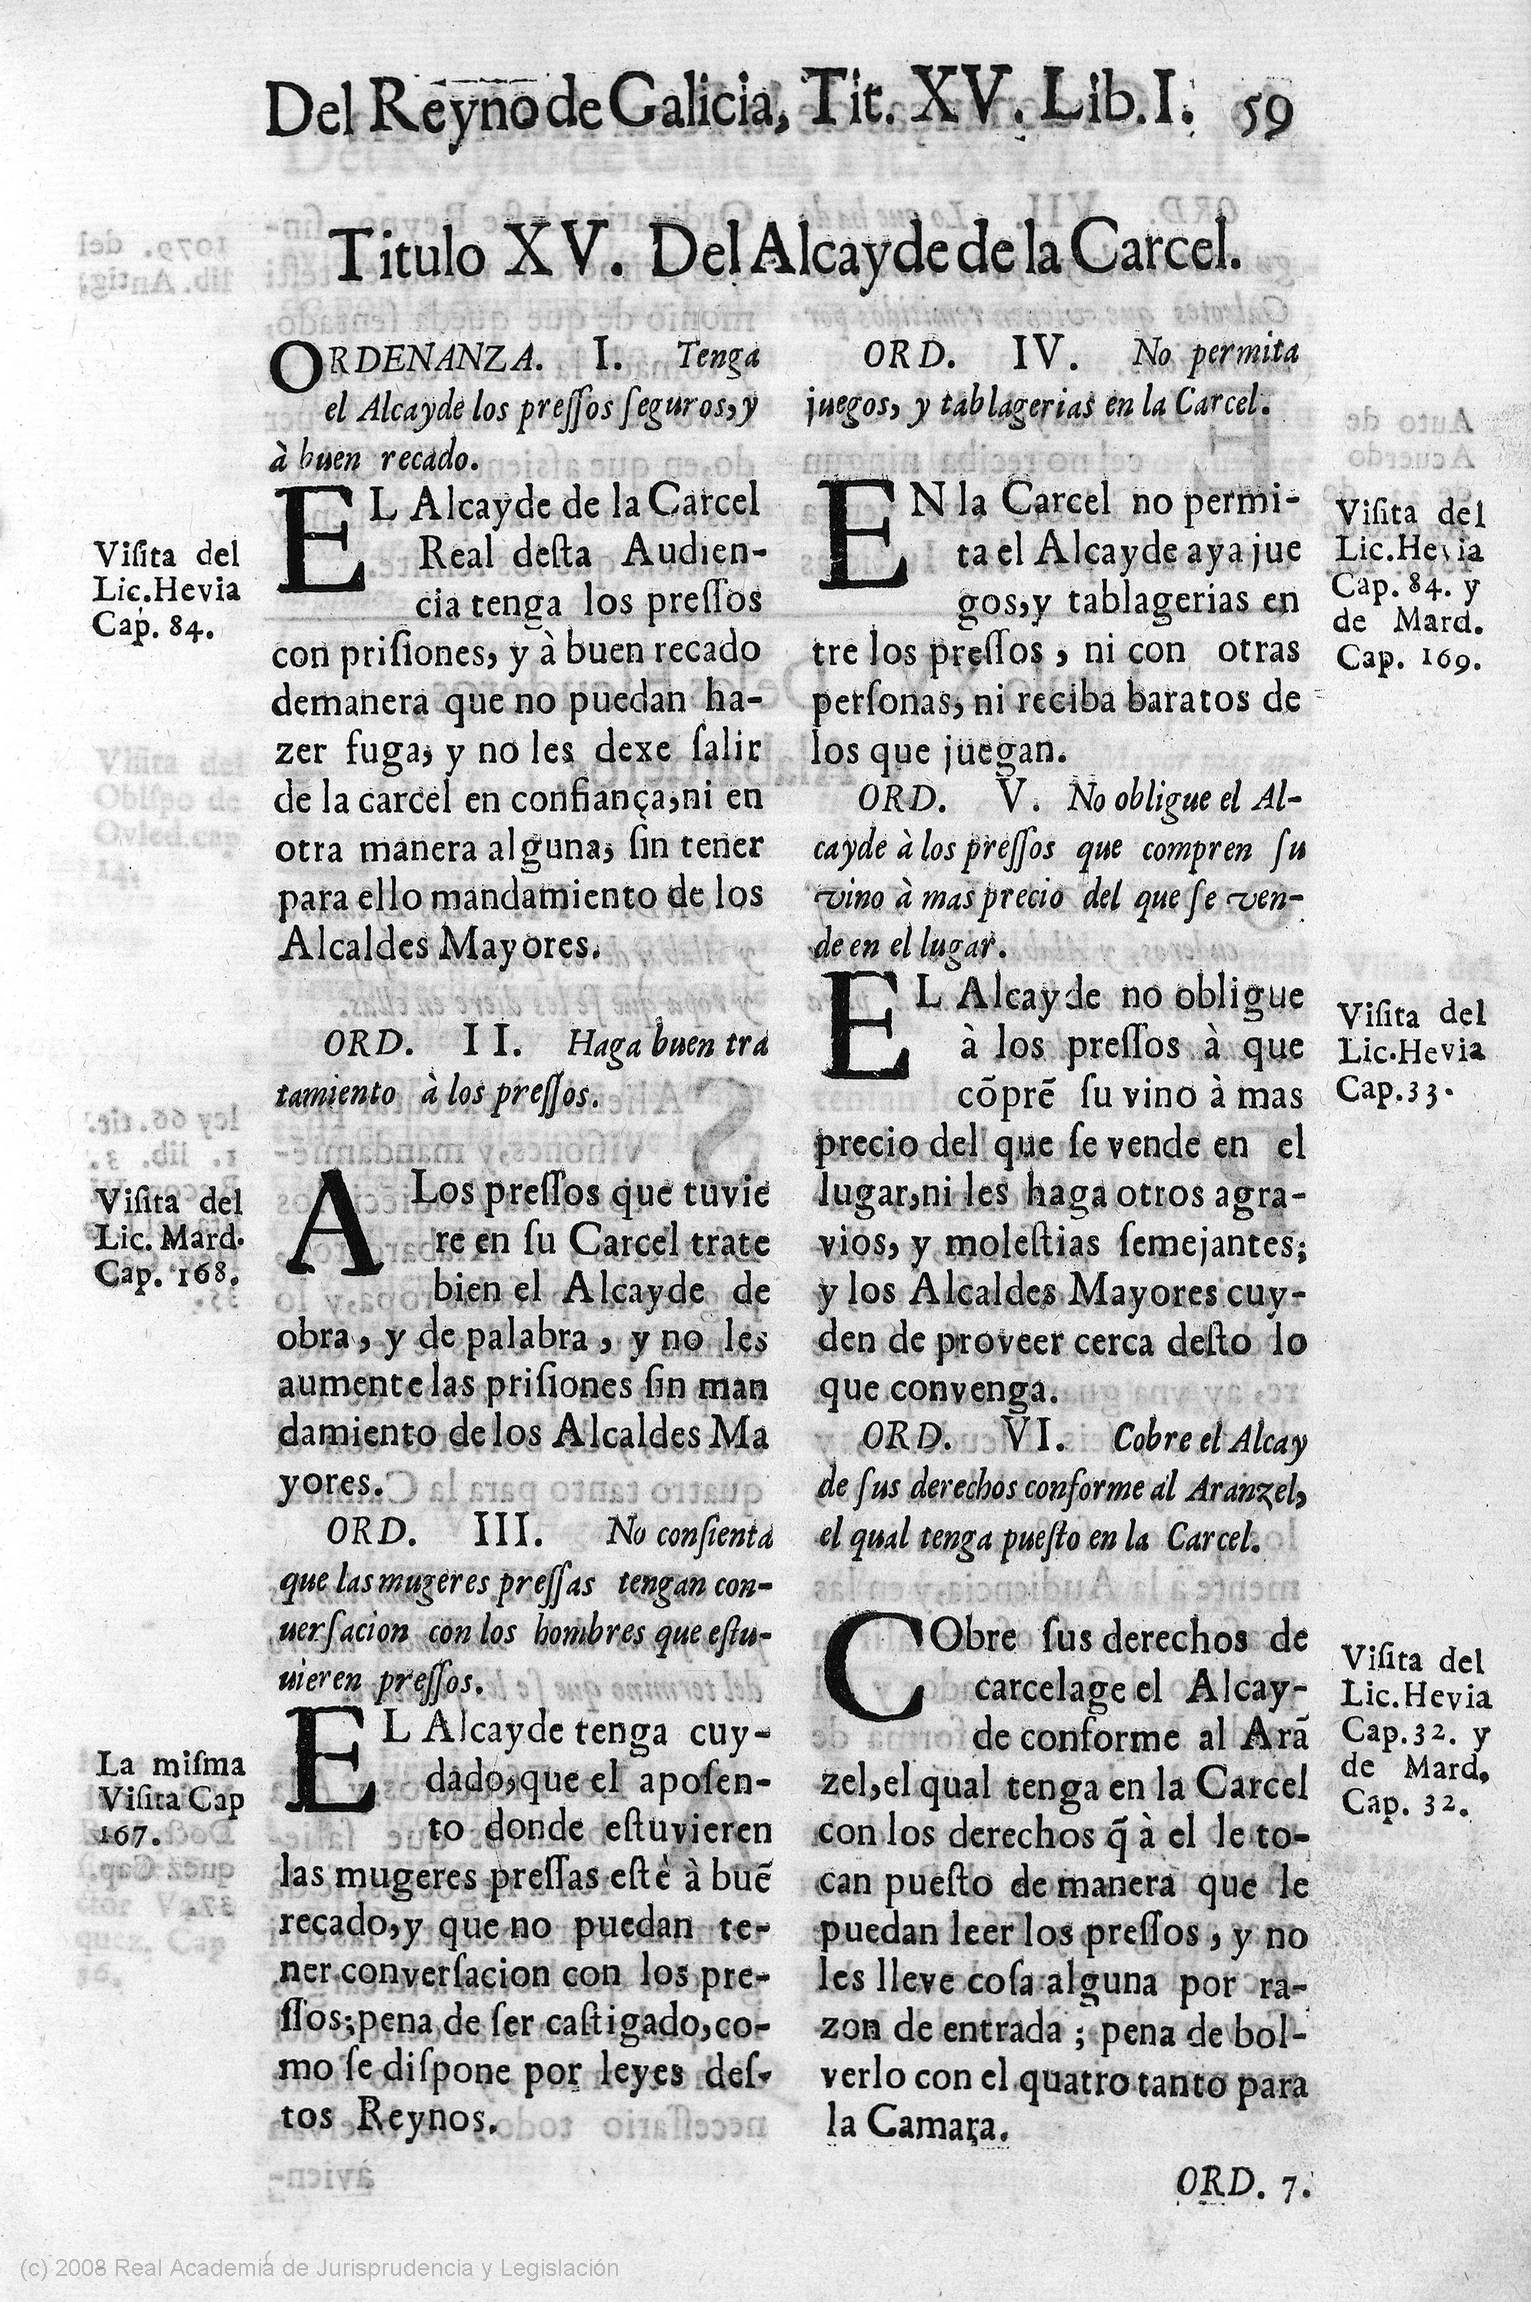 Del Reyno de Galicia, Tit. XV. Lib. I. 59
Titulo XV. Del Alcayde de la Carcel.
ORDENANZA. I. Tenga
el Alcayde los pressos seguros, y
à buen recado.
Visita del
Lic. Hevia
Cap. 84.
EL Alcayde de la Carcel
Real desta Audien-
cia tenga los pressos
con prisiones, y à buen recado
demanera que no puedan ha-
zer fuga, y no les dexe salir
de la carcel en confiança, ni en
otra manera alguna, sin tener
para ello mandamiento de los
Alcaldes Mayores.
ORD. II. Haga buen tra
tamiento à los pressos.
Visita del
Lic. Mard.
Cap. 168.
A Los pressos que tuvie
re en su Carcel trate
bien el Alcayde de
obra, y de palabra, y no les
aumente las prisiones sin man
damiento de los Alcaldes Ma
yores.
ORD. III. No consienta
que las mugeres pressas tengan con-
uersacion con los hombres que estu-
uieren pressos.
La misma
Visita Cap
167.
EL Alcayde tenga cuy-
dado, que el aposen-
to donde estuvieren
las mugeres pressas estè à buẽ
recado, y que no puedan te-
ner conversacion con los pre-
ssos; pena de ser castigado, co-
mo se dispone por leyes des-
tos Reynos.
ORD. IV. No permita
juegos, y tablagerias en la Carcel.
EN la Carcel no permi-
ta el Alcayde aya jue
gos, y tablagerias en
tre los pressos, ni con otras
personas, ni reciba baratos de
los que juegan.
Visita del
Lic. Hevia
Cap. 84. y
de Mard.
Cap. 169.
ORD. V. No obligue el Al-
cayde à los pressos que compren su
vino à mas precio del que se ven-
de en el lugar.
EL Alcayde no obligue
à los pressos à que
cõprẽ su vino à mas
precio del que se vende en el
lugar, ni les haga otros agra-
vios, y molestias semejantes;
y los Alcaldes Mayores cuy-
den de proveer cerca desto lo
que convenga.
Visita del
Lic. Hevia
Cap. 33.
ORD. VI. Cobre el Alcay
de sus derechos conforme al Aranzel,
el qual tenga puesto en la Carcel.
CObre sus derechos de
carcelage el Alcay-
de conforme al Arã
zel, el qual tenga en la Carcel
con los derechos q̃ à el le to-
can puesto de manera que le
puedan leer los pressos, y no
les lleve cosa alguna por ra-
zon de entrada; pena de bol-
verlo con el quatro tanto para
la Camara.
Visita del
Lic. Hevia
Cap. 32. y
de Mard.
Cap. 32.
ORD. 7.
(c) 2008 Real Academia de Jurisprudencia y Legislación